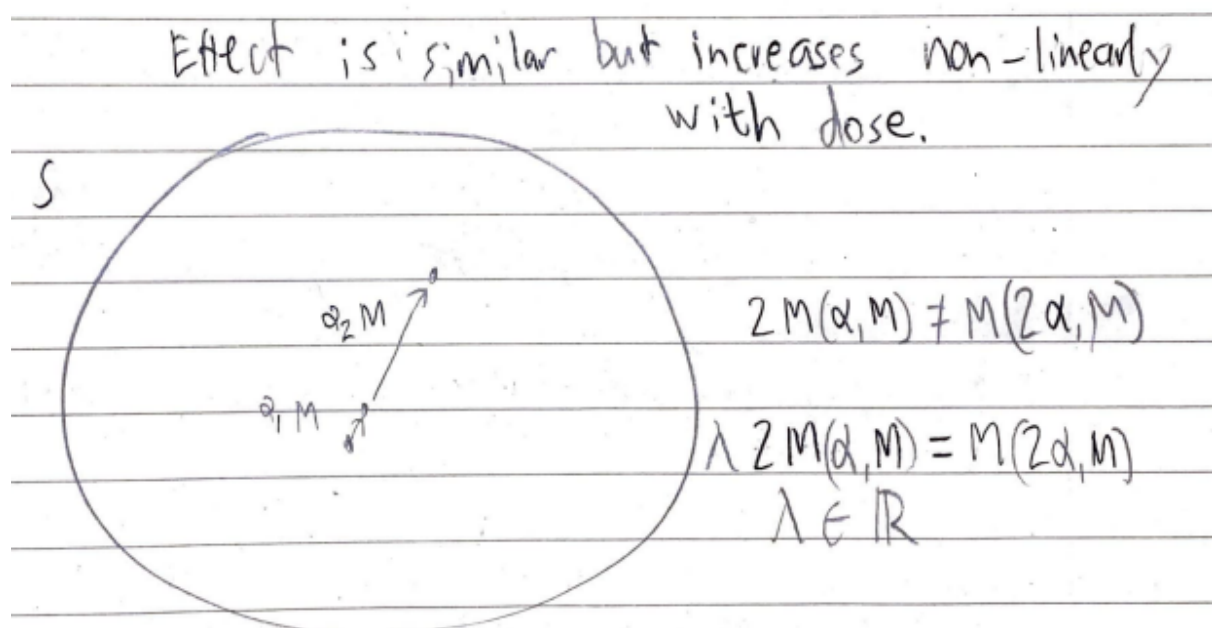 Effect is similar but increases non-linearly
with dose.
S
α₂ M
2M(α,M) ≠ M(2α,M)
α₁ M
λ2M(α,M) = M(2α,M)
λ ∈ ℝ